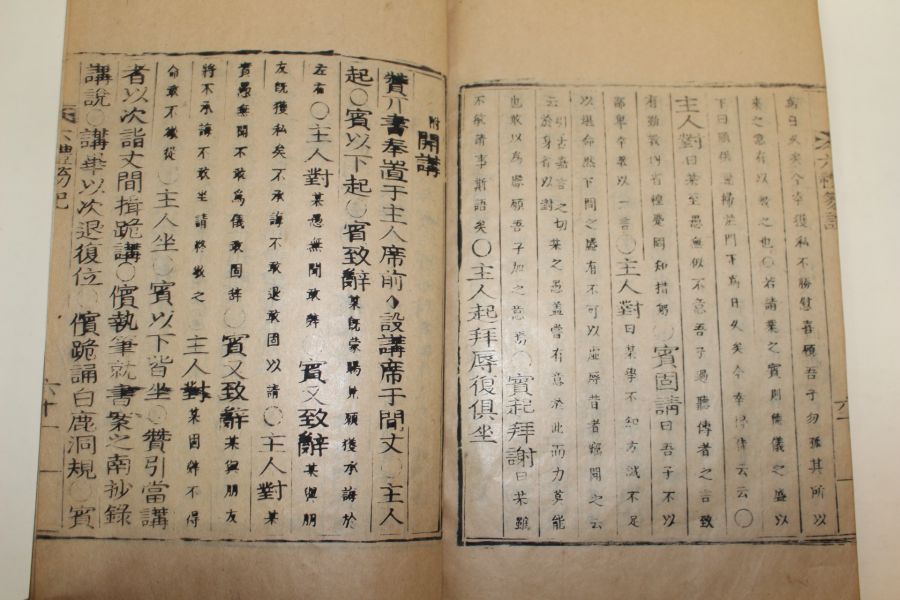 爲日久矣今幸獲私不勝慰喜願吾子勿孤其所以
來之意有以教之也○若請業之賓則俟儀之盛以
下曰願俟
主人對曰某至愚無似不意吾子過聽傳者之言致
有勤敢得省惶愛罔知措躬○賓固請曰吾子不以
鄙卑幸敎以一言○主人對曰某學不知方識不足
以堪命然下問之盛有不可以虛辱昔者竊聞之云
云於身者以對
引古嘉言之切某之愚蓋嘗有意於此而力莫能
也敢以爲吾願吾子加之意焉○賓起拜謝曰某雖
不敏請事斯語矣○主人起拜辱復俱坐
六禮笏記
附 開講
贊者以書奉置于主人席前○設講席于間丈○主人
起○賓以下起○賓致辭某旣蒙賜見願獲承誨於
左右○主人對某愚無聞敢辭○賓又致辭某與朋
友旣獲私矣不承誨不敢退敢固以請○主人對某
實愚無聞不敢爲儀敢固辭○賓又致辭某與朋友
將不承誨不敢坐請終敎之○主人對某固辭不得
命敢不敬從○主人坐○賓以下皆坐○贊引當講
者以次詣丈間揖跪講○儐執筆就書案之南抄錄
講說○講畢以次退復位○儐跪誦白鹿洞規○賓
六禮笏記
六十一